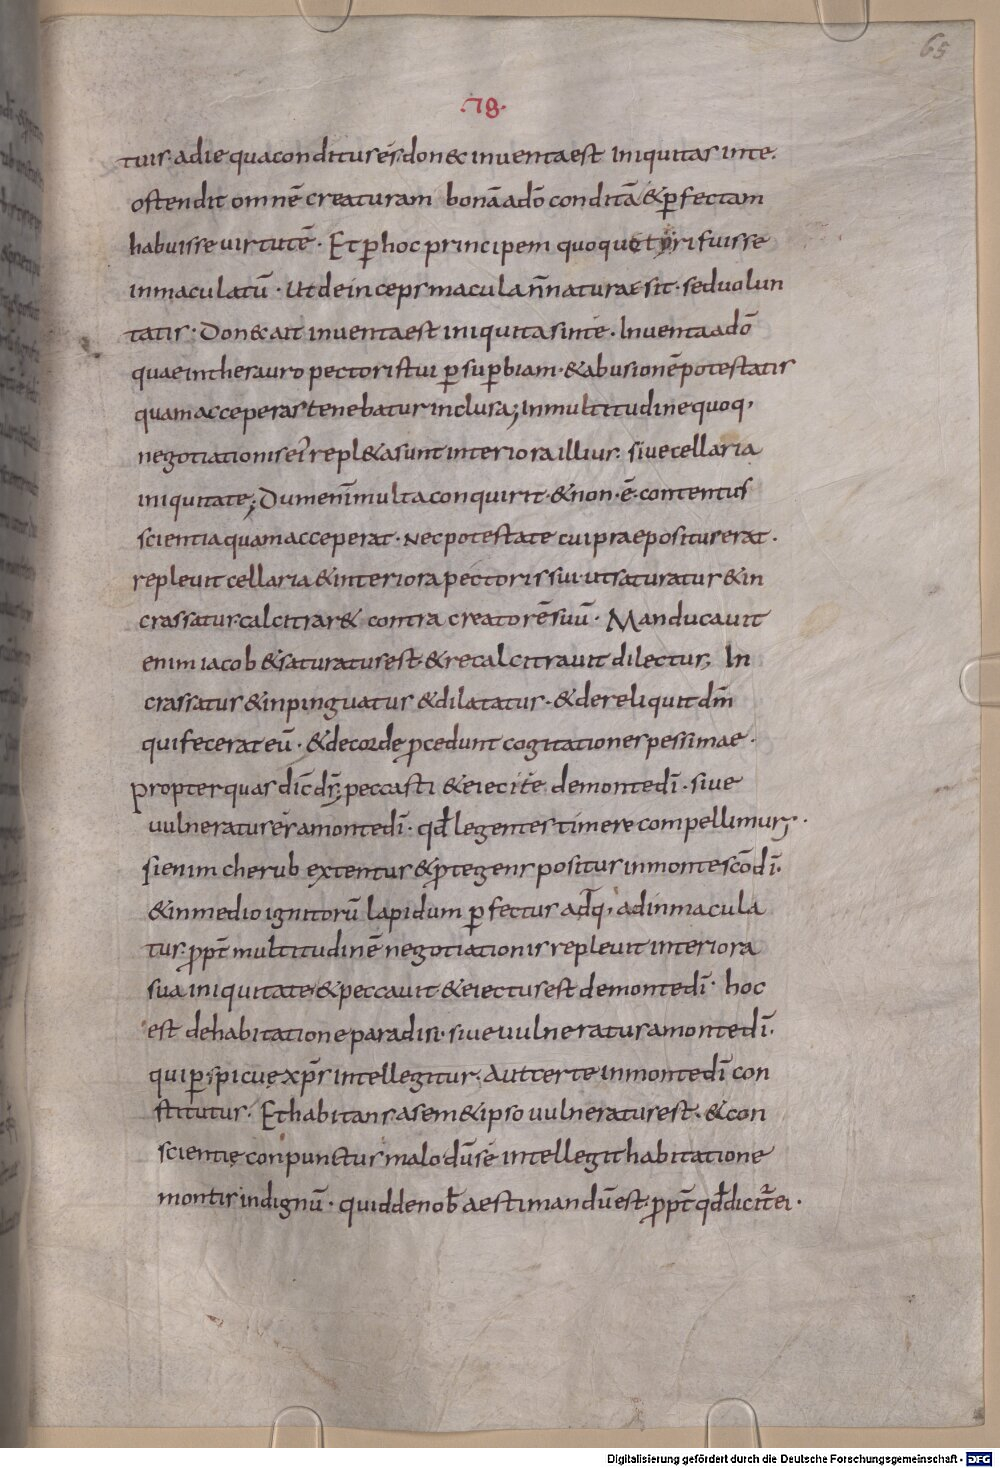 65
.78.
tuis· a die qua conditus es̄· donec inventa est iniquitas inte.
ostendit omnē creaturam bonā ado̅ conditā & ꝑfectam
habuisse virtutē· Et ꝑ hoc principem quoque tyri fuisse
inmaculatū· Ut deinceps macula n̅ naturae sit· sed volun
tatis· Don& ait inventa est iniquitas inte· Inventa a do̅
quae in thesauro pectoris tui ꝑ suꝑbiam· & abusionē potestatis
quam acceperas tenebatur inclusa; In multitudine quoq,
negotiationis ei᷒ repl&a sunt interiora illius· sive cellaria
iniquitate; Dum eni̅ multa conquirit & non· ē· contentus
scientia quam acceperat· nec potestate cui praepositus erat·
replevit cellaria & interiora pectoris sui· ut saturatus & in
crassatus calcitrar& contra creatorē suū· Manducavit
enim iacob & saturatus est & recalcitravit dilectus; In
crassatus & inpinguatus & dilatatus· & dereliquit dm̅
qui fecerat eū· & de corde ꝓcedunt cogitationes pessimae·
propter quas dic̅ dr̅; peccasti & eieci te de monte di̅· sive
vulneratus es̄ a monte di̅· qđ legentes timere compellimur;·
si enim cherub extentus & ꝓtegens positus in monte sc̅o di̅·
& in medio ignitorū lapidum ꝑfectus adq, ad inmacula
tus· ꝓpt̅ multitudinē negotiationis replevit interiora
sua iniquitate & peccavit & eiectus est de monte di̅· hoc
est de habitatione paradisi· sive vulneratus a monte di̅·
qui ꝑspicuę xp̅s intellegitur· Aut certe in monte di̅ con
stitutus· Et habitans a sem&ipso vulneratus est· & con
scientię conpunctus malo dū se intellegit habitatione
montis indignū· quid de nob̅ aestimandū est· ꝓpt̅ qđ dicit᷒ ei·
Digitalisierung gefördert durch die Deutsche Forschungsgemeinschaft - DFG